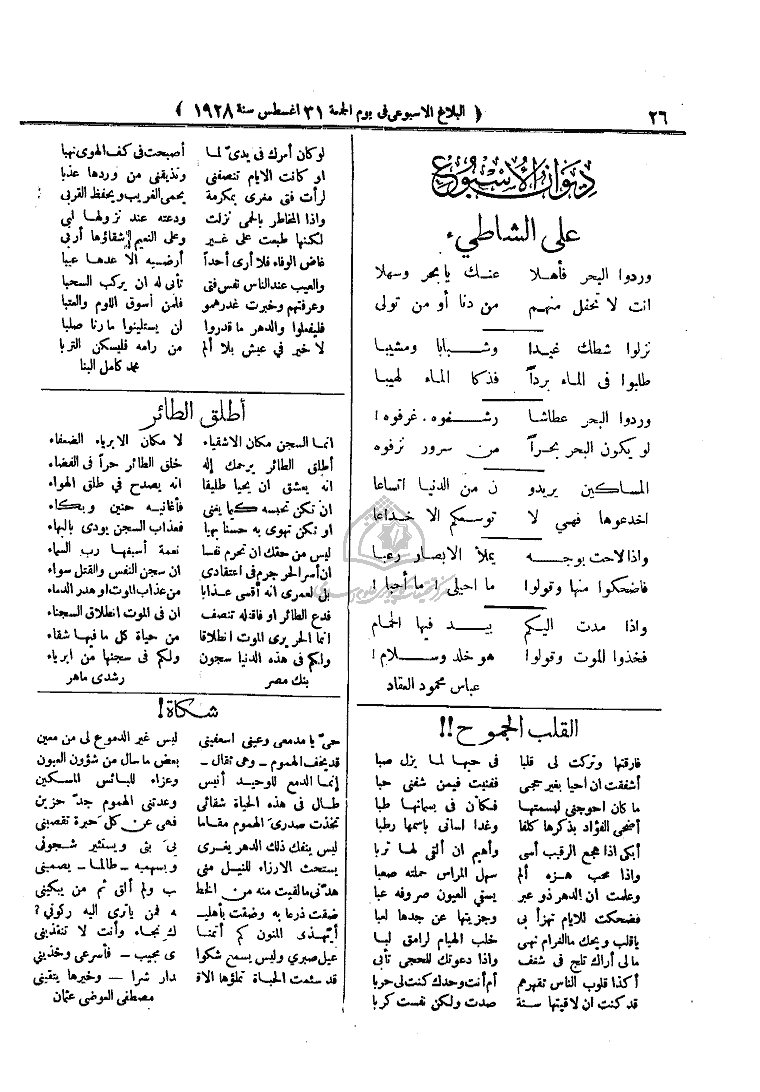 ٢٦
( البلاغ الاسبوعى فى يوم الجمعة ٣١ اغسطس سنة ١٩٢٨ )
ديوان الأسبوع
على الشاطىء
وردوا البحر فأهلا عنك يا بحر وسهلا
انت لا تحفل منهم من دنا أو من تولى
نزلوا شطك غيدا وشبابا ومشيبا
طلبوا فى الماء برداً فذكا الماء لهيبا
وردوا البحر عطاشا رشفوه . غرفوه !
لو يكون البحر بحراً من سرور نزفوه
المساكين يريدو ن من الدنيا اتساعا
اخدعوها فهي لا توسعكم الا خداعا
واذا لاحت بوجه يملأ الابصار رعبا
فاضحكوا منها وقولوا ما احيلى ! ما أحبا !
واذا مدت اليكم بيد فيها الحمام
فخذوا الموت وقولوا هو خلد وسلام !
عباس محمود العقاد
القلب الجموح !!
فارقتها وتركت لى قلبا فى حبها لما يزل صبا
أشفقت ان احيا بغير حجى ففنيت فيمن شفنى حبا
ما كان احوجنى لبسمتها فكأن فى بسماتها طبا
أضحى الفؤاد بذكرها كلفا وغدا لسانى باسمها رطبا
أبكى اذا هجع الرقيب أسى وأهيم ان ألقى لها تربا
واذا محب هزه ألم سهل المراس حملته صعبا
وعلمت ان الدهر ذو عبر يسبي العيون صروفه عبا
فضحكت للايام تهزأ بى وجزيتها عن جدها لعبا
ياقلب ويحك ماالغرام نهى خلب الهيام لرامق لبا
مالى أراك تلج فى شغف واذا دعوتك للحجى تأبى
أكذا قلوب الناس تقهرهم أم أنت وحدك كنت لى حربا
قد كنت ان لاقيتها سنة صدت ولكن نفست كربا
لو كان أمرك فى يدىّ لما أصبحت فى كف الهوى نهبا
او كانت الايام تنصفنى وتذيقنى من وردها عذبا
لرأت فتى مغرى بمكرمة يحمى الغريب ويحفظ القربى
واذا المخاطر بالحمى نزلت ودعته عند نزولها لبى
لكنها طبعت على غير وعلى النعيم إشقاؤها أربى
غاض الوفاء فلا أرى أحداً أرضيه الا عدها عيبا
والعيب عند الناس نفس فتى تأبى له ان يركب السحبا
وعرفتهم وخبرت غدرهمو فلمن أسوق اللوم والعتبا
فليفعلوا والدهر ما قدروا لن يستلينوا مارنا صلبا
لا خير فى عيش بلا ألم من رامه فليسكن التربا
محمد كامل البنا
أطلق الطائر
انما السجن مكان الاشقياء لا مكان الابرياء الضعفاء
أطلق الطائر يرحمك إله خلق الطائر حراً فى الفضاء
انه يعشق ان يحيا طليقا انه يصدح في طلق الهواء
ان تكن تحبسه كيما يغنى فأغانيه حنين وبكاء
او تكن تهوى به حسنا بهيا فعذاب السجن يودى بالبهاء
ليس من حقك ان تحرم نفسا نعمة أسبغها رب السماء
ان أسر الحر جرم فى اعتقادى ان سجن النفس والقتل سواء
بل لعمرى انه أقسى عذابا من عذاب الموت او هدر الدماء
فدع الطائر او فاقتله تنصف ان فى الموت انطلاق السجناء
انما الحر يرى الموت انطلاقا من حياة كل ما فيها شقاء
ولكم فى هذه الدنيا سجون ولكم فى سجنها من ابرياء
بنك مصر رشدى ماهر
شكاة !
حىّ يا مدمعى وعينى اسعفينى ليس غير الدموع لى من معين
قد يخف الهموم – وهى ثقال – بعض ما سال من شؤون العيون
إنما الدمع للوحيد أنيس وعزاء للبائس المسكين
طال فى هذه الحياة شقائى وعدتنى الهموم جدّ حزين
تخذت صدرىَ الهموم مقاما فهى عن كل حيرة تقصينى
ليس ينفك ذلك الدهر يغرى بىَ بنى ويستثير شجونى
يستحث الارزاء للنيل منى وبسهميه – طالما – يصمينى
هدّنى مالقيت منه من الخط ب ولم ألق ثم من يبكينى
ضقت ذرعا به وضقت بأهليـ ـه فمن ياترى اليه ركونى ؟
أيّهذى المنون كم أتمنا ك نجاء وأنت لا تنقذينى
عيل صبرى وليس يسمع شكوا ى مجيب – فأسرعى وخذينى
قد سئمت الحياة تملؤها الاقـ دار شرا – وخيرها يتقينى
مصطفى العوضى عثمان